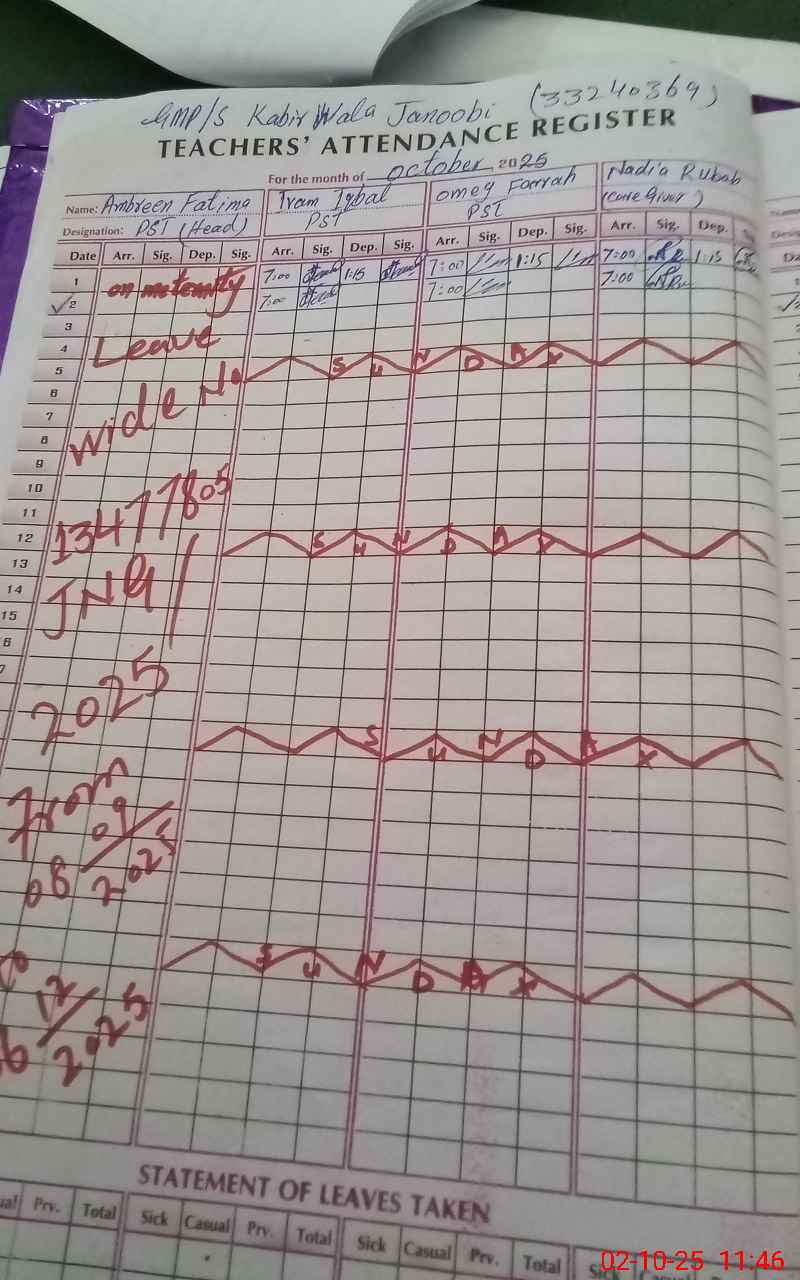 GMP/S Kabir Wala Janoobi (33240369)
TEACHERS' ATTENDANCE REGISTER
For the month of october 2025
Name: Ambreen Fatima Iram Iqbal omey Farrah Nadia Rubab
Designation: PST (Head) PST PST (Care Giver)
Date Arr. Sig. Dep. Sig. Arr. Sig. Dep. Sig. Arr. Sig. Dep. Sig. Arr. Sig. Dep.
1 on maternity 7:00 1:15 7:00 1:15 7:00 1:15
2 7:00 7:00 7:00
3
4 Leave
5 SUNDAY
6
7 wide No
8
9
10
11
12 13477805 SUNDAY
13
14 JNG/
15
6
7
2025
SUNDAY
From
08/09/2025
SUNDAY
to
6/12/2025
STATEMENT OF LEAVES TAKEN
Prv. Total Sick Casual Prv. Total Sick Casual Prv. Total Sick
02-10-25 11:46